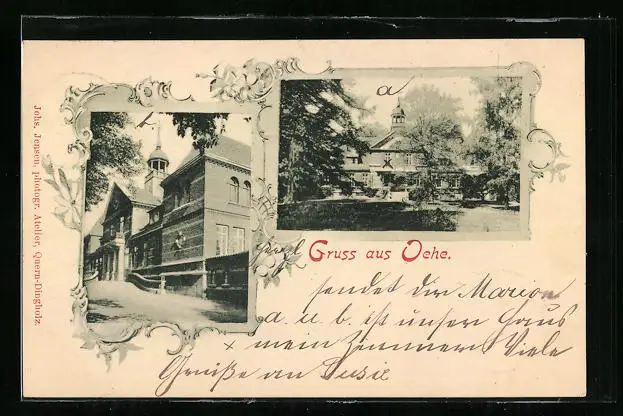 Johs. Jepsen, photogr. Atelier, Quern-Dingholz.
b
a
Gruss aus Oehe.
sendet dir Marion
a. u. b. ist unser Haus
x mein Zimmer Viele
Grüße an Susie